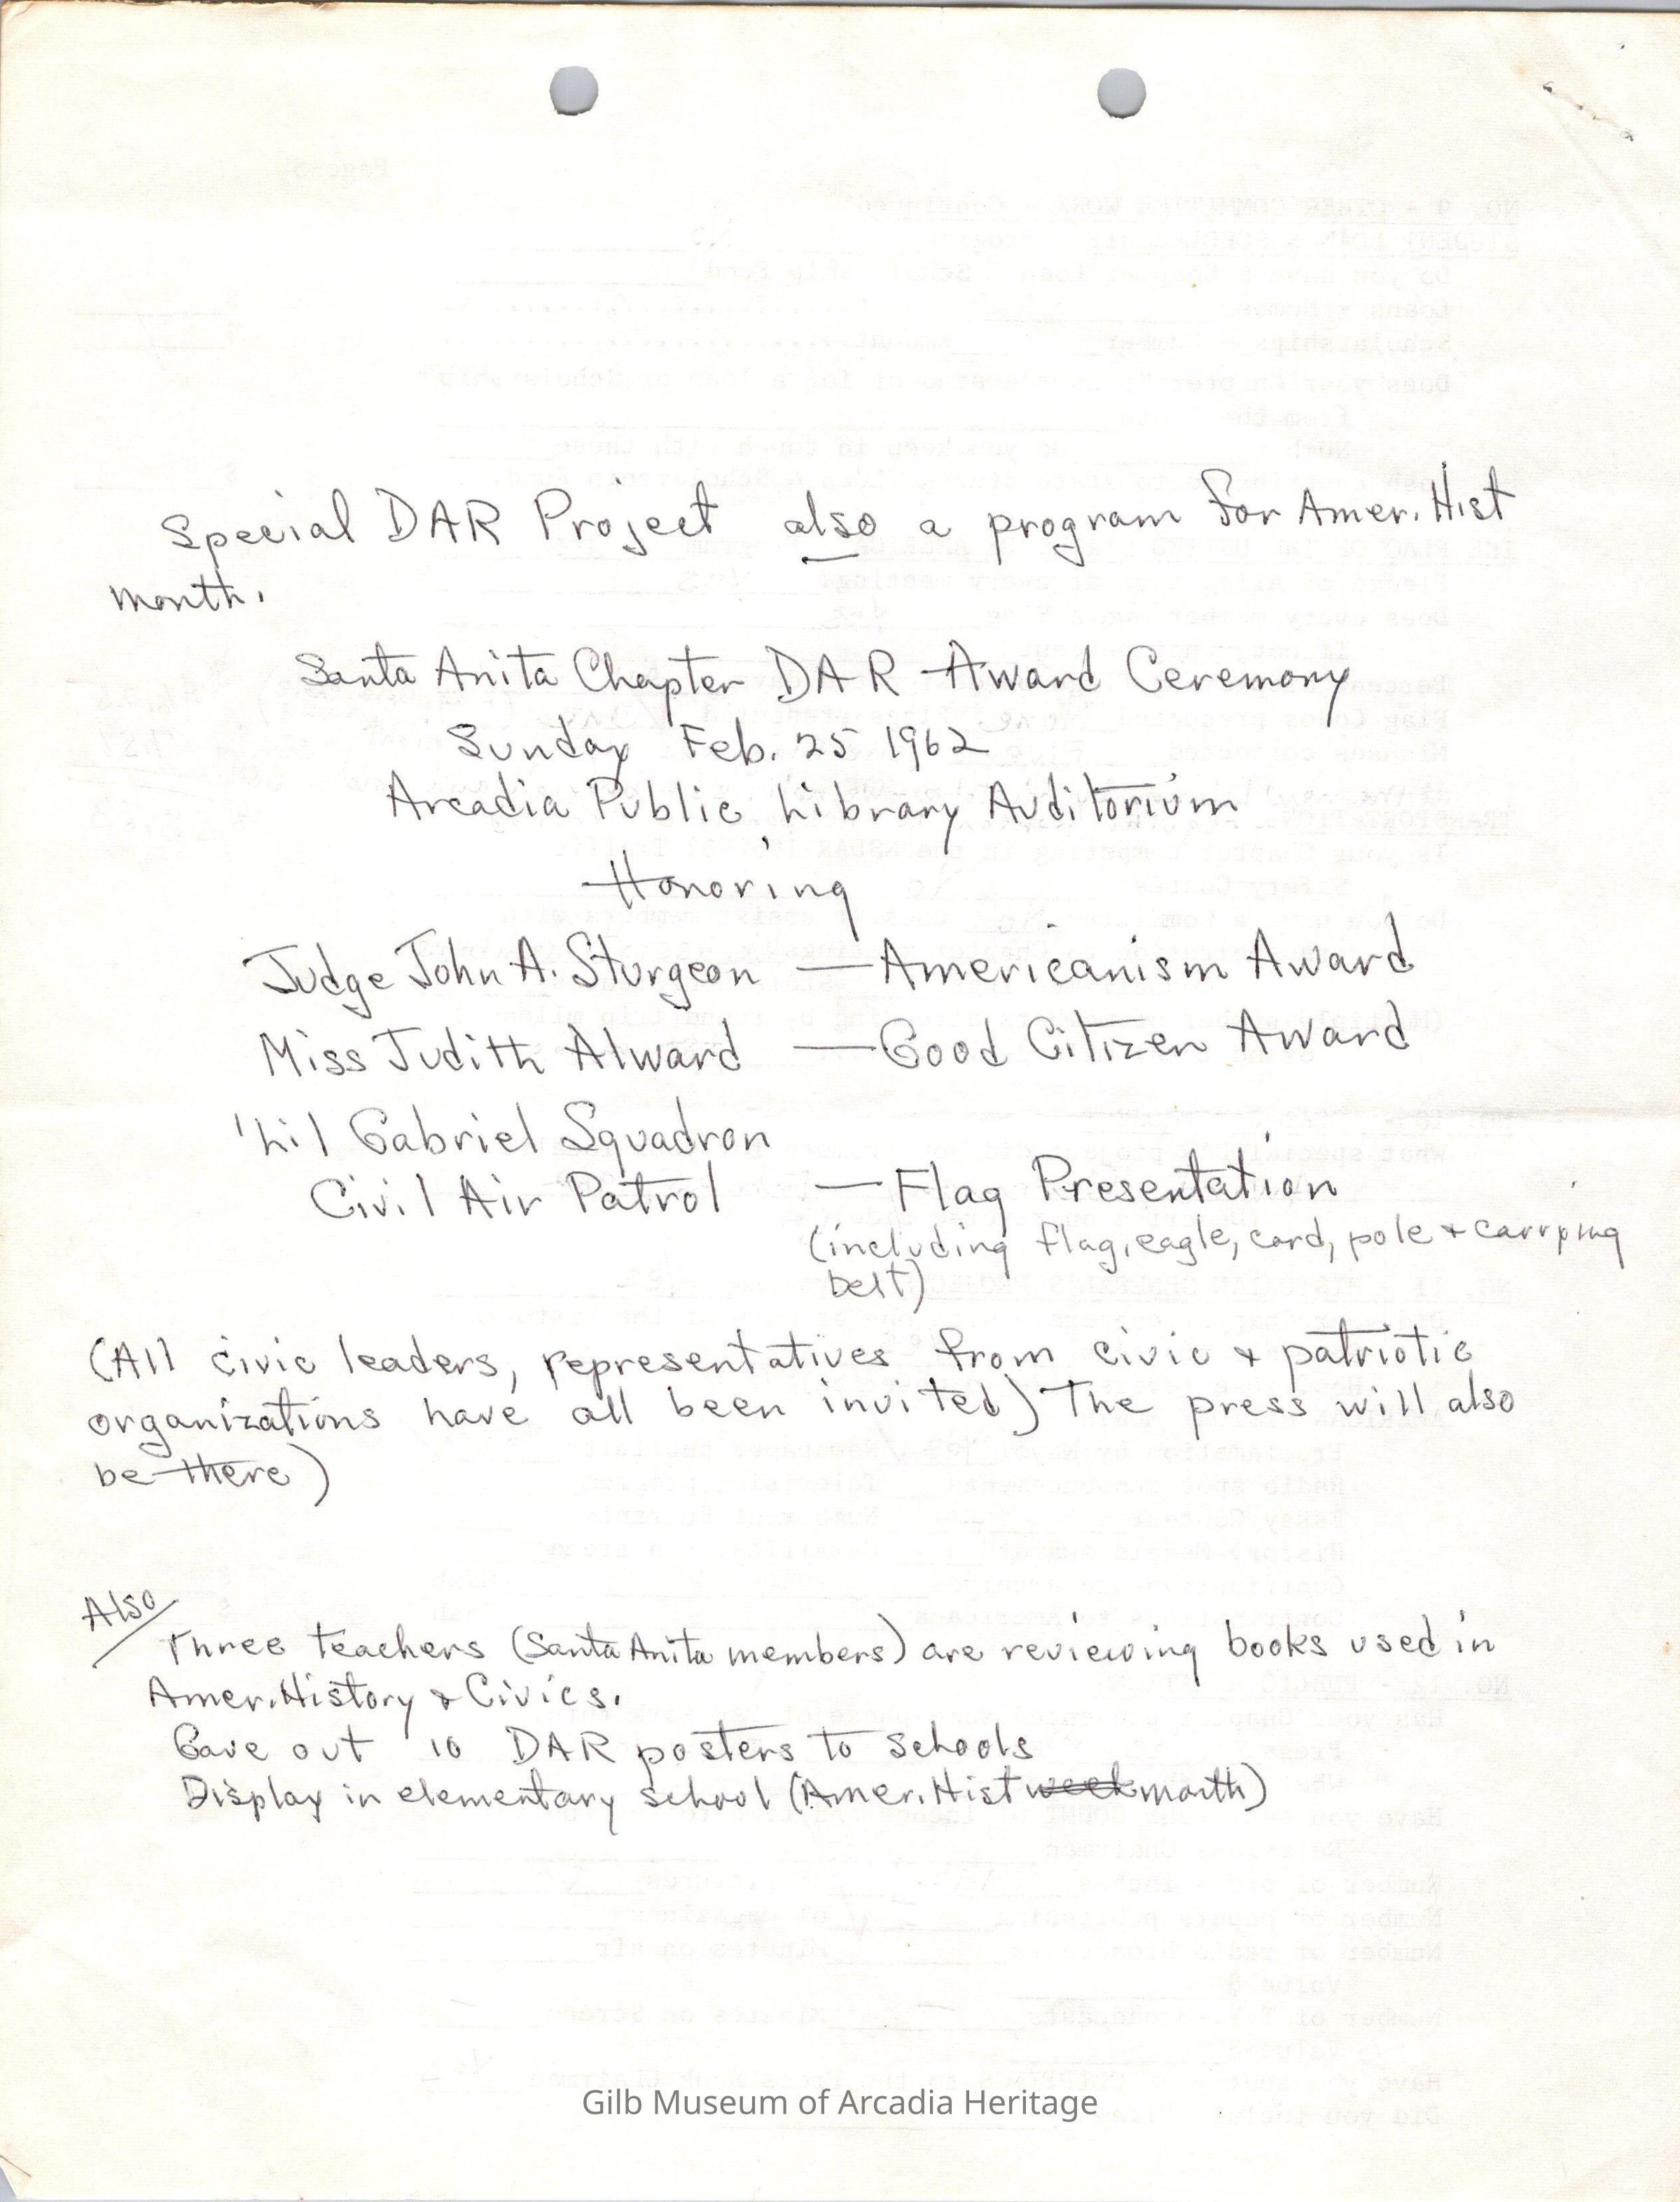 Special DAR Project also a program for Amer. Hist
month.
Santa Anita Chapter DAR Award Ceremony
Sunday Feb. 25 1962
Arcadia Public Library Auditorium
Honoring
Judge John A. Sturgeon — Americanism Award
Miss Judith Alward — Good Citizen Award
'Lil Gabriel Squadron
Civil Air Patrol — Flag Presentation
(including flag, eagle, cord, pole & carrying
belt)
(All civic leaders, representatives from civic & patriotic
organizations have all been invited) The press will also
be there)
Also
Three teachers (Santa Anita members) are reviewing books used in
Amer. History & Civics.
Gave out 10 DAR posters to schools
Display in elementary school (Amer. Hist week month)
Gilb Museum of Arcadia Heritage